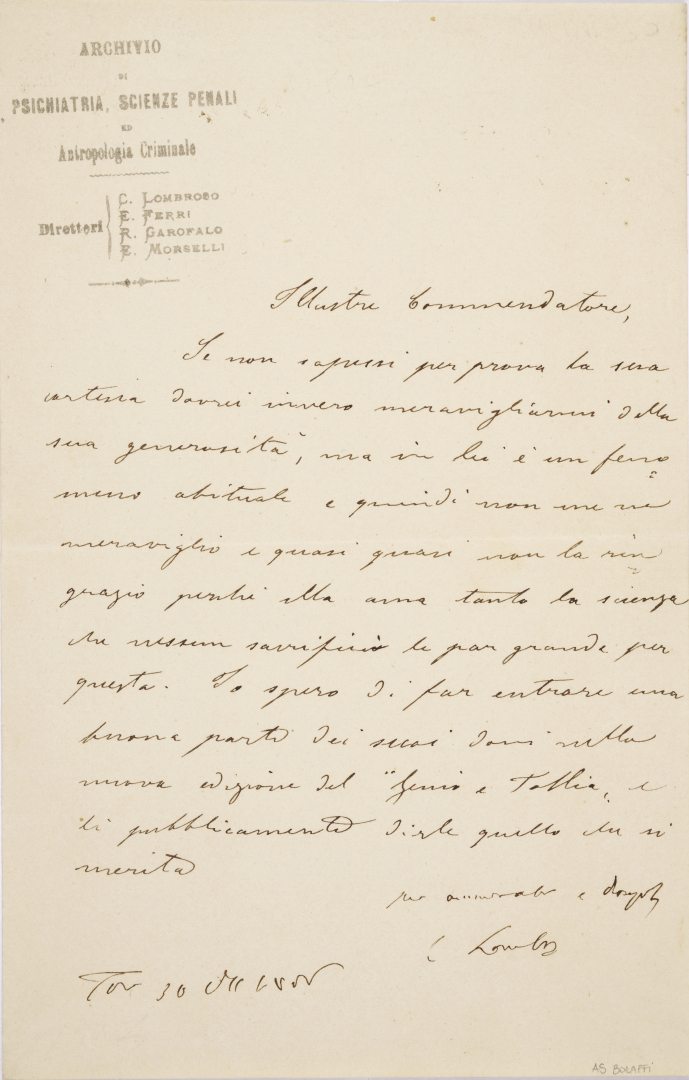 ARCHIVIO
DI
PSICHIATRIA, SCIENZE PENALI
ED
Antropologia Criminale
Direttori
C. LOMBROSO
E. FERRI
R. GAROFALO
E. MORSELLI
Illustre Commendatore,
Se non sapessi per prova la sua
cortesia dovrei invero meravigliarmi della
sua generosità, ma in lei è un feno
meno abituale e quindi non me ne
meraviglio e quasi quasi non la rin
grazio perchè ella ama tanto la scienza
che nessun sacrificio le par grande per
questa. Io spero di far entrare una
buona parte dei suoi doni nella
nuova edizione del "Genio e Follia" e
lì pubblicamente dirle quello che si
merita
suo e
C Lombr
Tor 30
AS BOLAFFI